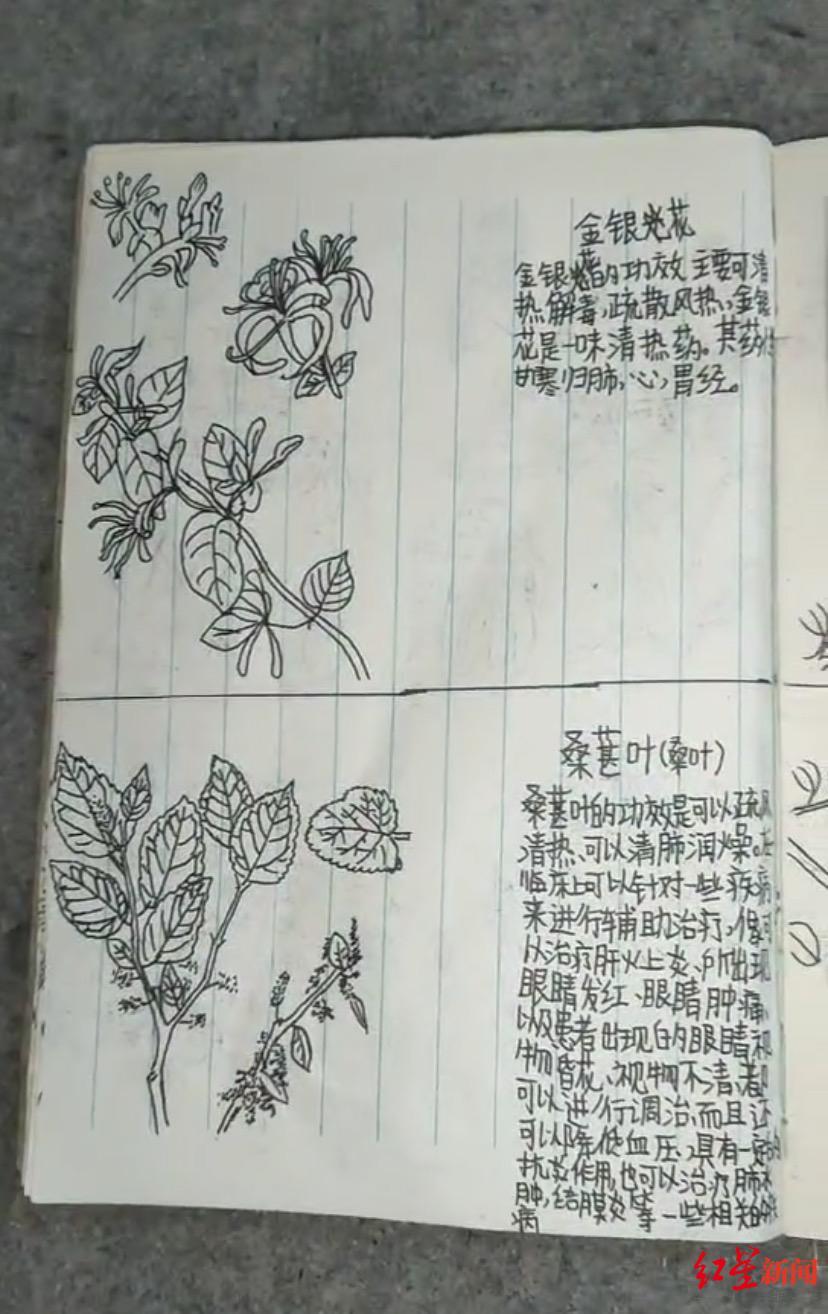 金银光花
花
金银的功效 主要可清
热解毒,疏散风热,金银
花是一味清热药。其药性
甘寒归肺,心,胃经。
桑葚叶(桑叶)
桑葚叶的功效是可以疏风
清热、可以清肺润燥。在
临床上可以针对一些疾病
来进行辅助治疗,像可
以治疗肝火上炎、所出现
眼睛发红、眼睛肿痛、
以及患者出现的眼睛视
物昏花、视物不清、都
可以进行调治,而且还
可以降低血压、具有一定的
抗炎作用,也可以治疗肺水
肿,结膜炎等一些相关的
病
红星新闻